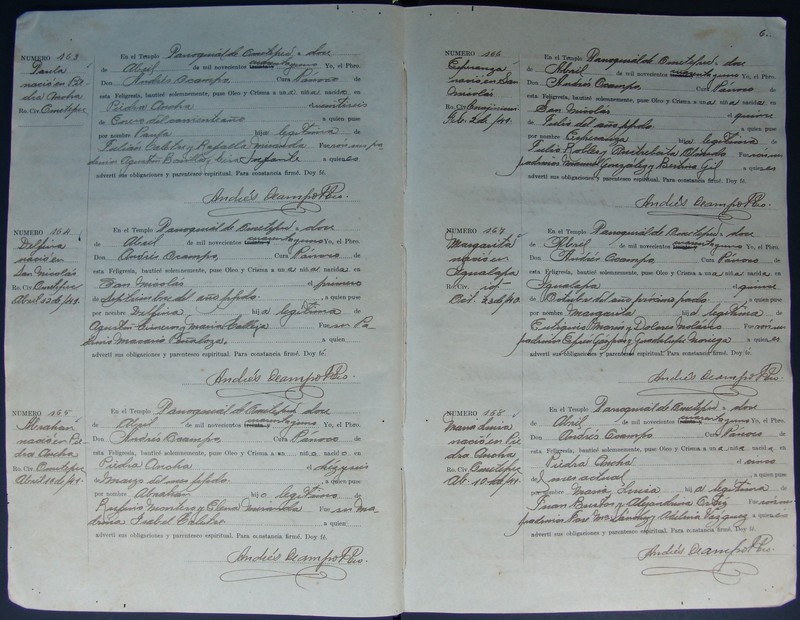 NUMERO 163
Paula
nació en Pie
dra Ancha
Ro. Civ. Ometepec
En el Templo Parroquial de Ometepec, a doce
de Abril de mil novecientos cuarentayuno Yo, el Pbro.
Don Andrés Ocampo, Cura Párroco de
esta Feligresía, bauticé solemnemente, puse Oleo y Crisma a una niña nacida en
Piedra Ancha el
de Enero del corriente año a quien puse
por nombre Paula hija legítima de
Julián y Rafaela Miranda Fueron pa
drino Agustín a quienes
advertí sus obligaciones y parentesco espiritual. Para constancia firmé. Doy fé.
Andrés Ocampo Pbro.
NUMERO 164
Delfina
nació en
San Nicolás
Ro. Civ. Ometepec
Abril 12 de/41.
En el Templo Parroquial de Ometepec, a doce
de Abril de mil novecientos cuarentayuno Yo, el Pbro.
Don Andrés Ocampo, Cura Párroco de
esta Feligresía, bauticé solemnemente, puse Oleo y Crisma a una niña nacida en
San Nicolás el primero
de Septiembre del año ppdo. a quien puse
por nombre Delfina hija legítima de
Agustín y María Calleja Fueron Pa
drino Macario a quien
advertí sus obligaciones y parentesco espiritual. Para constancia firmé. Doy fé.
Andrés Ocampo Pbro.
NUMERO 165
Abrahán
nació en Pie
dra Ancha
Ro. Civ. Ometepec
Abril de/41.
En el Templo Parroquial de Ometepec, a doce
de Abril de mil novecientos cuarentayuno Yo, el Pbro.
Don Andrés Ocampo, Cura Párroco de
esta Feligresía, bauticé solemnemente, puse Oleo y Crisma a un niño nacido en
Piedra Ancha el
de Marzo del mes ppdo. a quien puse
por nombre Abrahán hijo legítimo de
Rufino Montero y Elena Miranda Fue su ma
drina Isabel a quien
advertí sus obligaciones y parentesco espiritual. Para constancia firmé. Doy fé.
Andrés Ocampo Pbro.
6.
NUMERO 166
Esperanza
nació en San
Nicolás
Ro. Civ.
Feb. 2 de/41.
En el Templo Parroquial de Ometepec, a doce
de Abril de mil novecientos cuarentayuno Yo, el Pbro.
Don Andrés Ocampo, Cura Párroco de
esta Feligresía, bauticé solemnemente, puse Oleo y Crisma a una niña nacida en
San Nicolás el quince
de Julio del año ppdo. a quien puse
por nombre Esperanza hija legítima de
Julio y Obando Fueron
padrinos González y Gil a quienes
advertí sus obligaciones y parentesco espiritual. Para constancia firmé. Doy fé.
Andrés Ocampo Pbro.
NUMERO 167
Margarita
nació en
Igualapa
Ro. Civ. id
Oct. de/40.
En el Templo Parroquial de Ometepec, a doce
de Abril de mil novecientos cuarentayuno Yo, el Pbro.
Don Andrés Ocampo, Cura Párroco de
esta Feligresía, bauticé solemnemente, puse Oleo y Crisma a una niña nacida en
Igualapa el quince
de Octubre del año próximo pasdo. a quien puse
por nombre Margarita hija legítima de
y Dolores Fueron
padrinos y Guadalupe Noriega a quienes
advertí sus obligaciones y parentesco espiritual. Para constancia firmé. Doy fé.
Andrés Ocampo Pbro.
NUMERO 168
María Lucía
nació en Pie
dra Ancha
Ro. Civ. Ometepec
Ab. 10 de/41.
En el Templo Parroquial de Ometepec, a doce
de Abril de mil novecientos cuarentayuno Yo, el Pbro.
Don Andrés Ocampo, Cura Párroco de
esta Feligresía, bauticé solemnemente, puse Oleo y Crisma a una niña nacida en
Piedra Ancha el cinco
del mes actual a quien puse
por nombre María Lucía hija legítima de
Juan y Alejandrina Ortiz Fueron
padrinos José Ma. Sánchez y Vázquez a quienes
advertí sus obligaciones y parentesco espiritual. Para constancia firmé. Doy fé.
Andrés Ocampo Pbro.